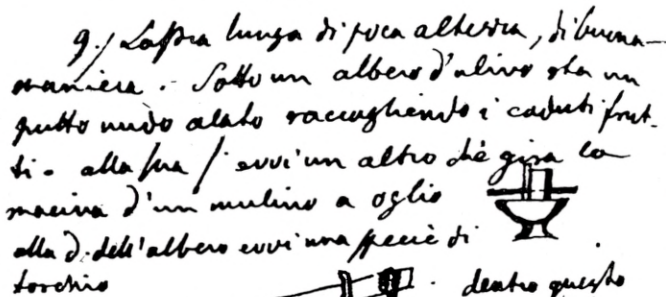 9./ Lastra lunga di poca altezza, di buona-
maniera. Sotto un albero d'ulivo sta un
putto nudo alato raccogliendo i caduti frut-
ti. alla sua s. evvi un altro che gira la
macina d'un mulino a oglio
alla d. dell'albero evvi una specie di
torchio . dentro questo